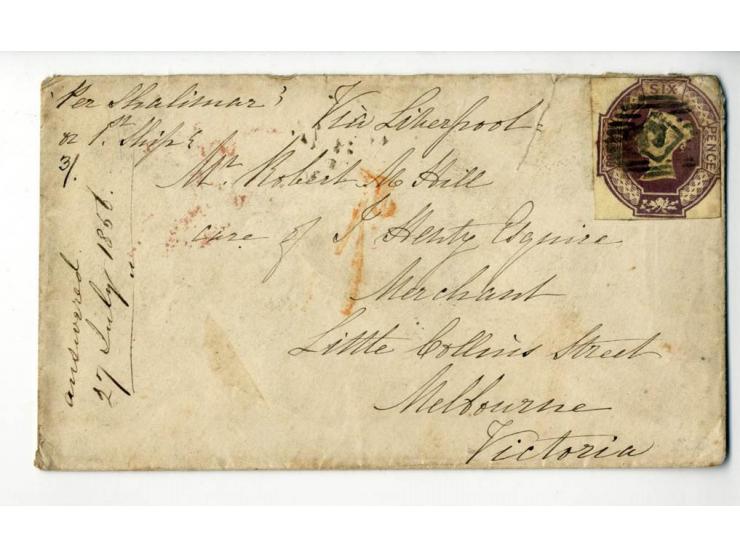 Per Shalimar
or 1st Ship
3/.
Via Liverpool
Mr. Robert Hill
care of J Henty Esquire
Merchant
Little Collins Street
Melbourne
Victoria
answered
27 July 1856.
SIX
PENCE